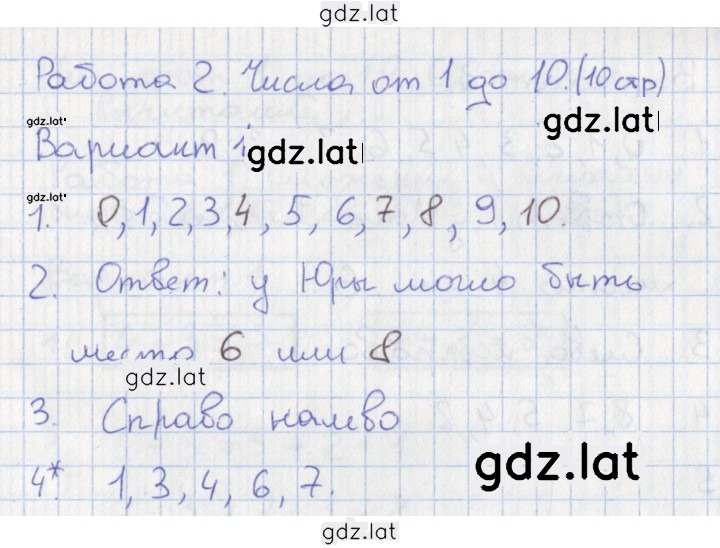 gdz.lat
Работа 2. Числа от 1 до 10. (10 стр)
gdz.lat
gdz.lat
Вариант 1
gdz.lat
gdz.lat
1. 0, 1, 2, 3, 4, 5, 6, 7, 8, 9, 10.
2. Ответ: у Юры могло быть
место 6 или 8
gdz.lat
3. Справо налево
gdz.lat
4*. 1, 3, 4, 6, 7.
gdz.lat